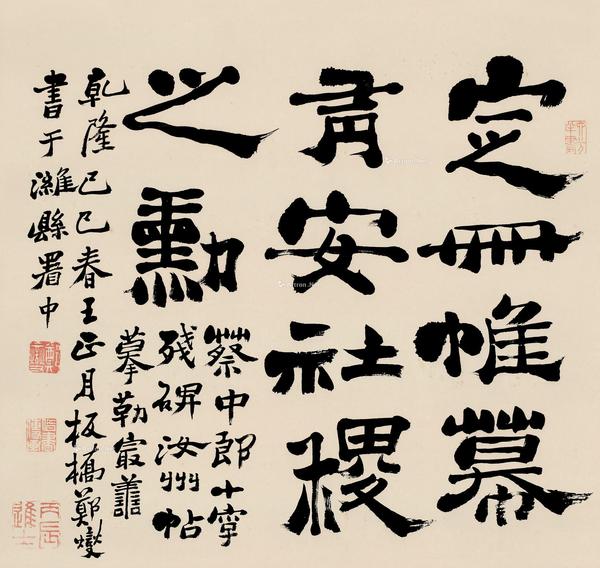 定冊帷幕
有安社稷
之勳
蔡中郎十字
殘碑汝州帖
摹勒最善
乾隆己巳春王正月板橋鄭燮
書于濰縣署中
丙辰進士